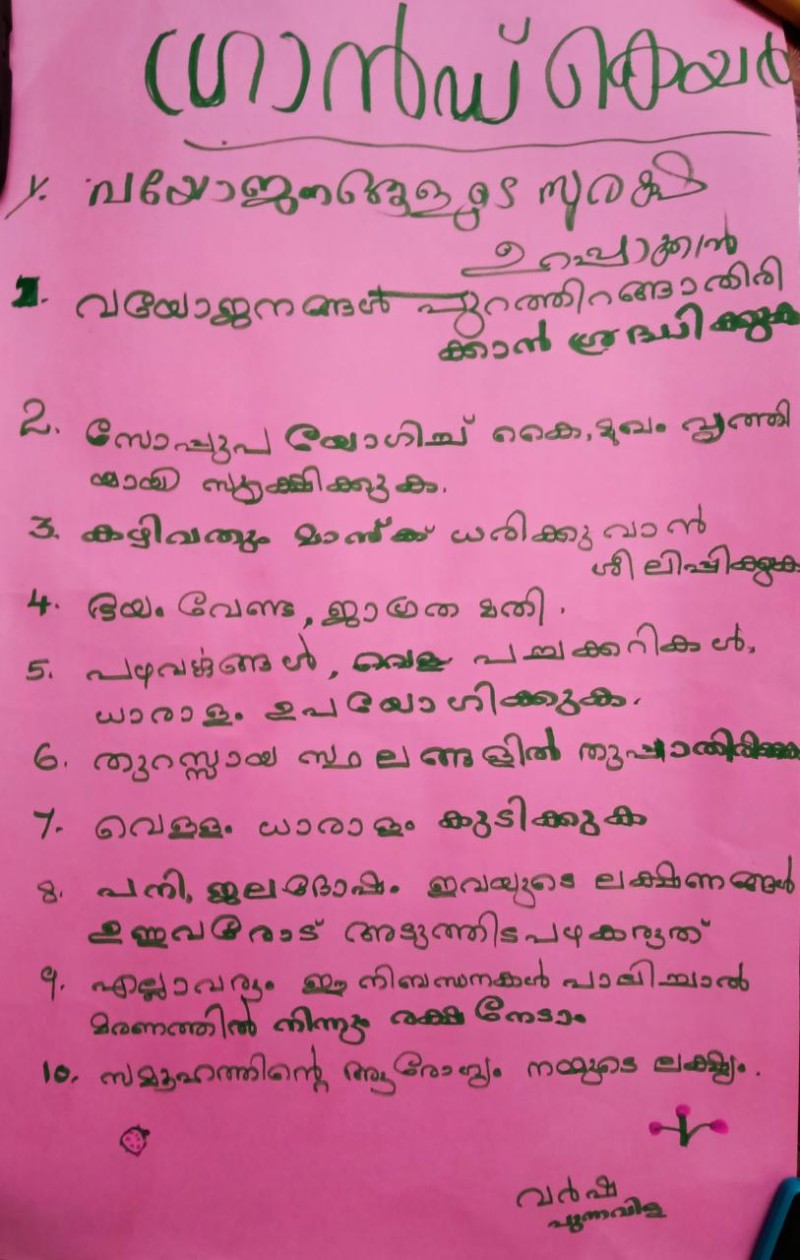 ഗ്രാൻഡ് കെയർ
1. വയോജനങ്ങളുടെ സുരക്ഷ
ഉറപ്പാക്കാൻ
1. വയോജനങ്ങൾ പുറത്തിറങ്ങാതിരി
ക്കാൻ ശ്രദ്ധിക്കുക
2. സോപ്പുപ യോഗിച്ച് കൈ, മുഖം വൃത്തി
യായി സൂക്ഷിക്കുക.
3. കഴിവതും മാസ്ക് ധരിക്കുവാൻ
ശീലിപ്പിക്കുക
4. ഭയം വേണ്ട, ജാഗ്രത മതി.
5. പഴവർഗ്ഗങ്ങൾ, പച്ചക്കറികൾ,
ധാരാളം ഉപയോഗിക്കുക.
6. തുറസ്സായ സ്ഥലങ്ങളിൽ തുപ്പാതിരിക്കുക
7. വെള്ളം ധാരാളം കുടിക്കുക
8. പനി, ജലദോഷം ഇവയുടെ ലക്ഷണങ്ങൾ
ഉള്ളവരോട് അടുത്തിടപഴകരുത്
9. എല്ലാവരും ഈ നിബന്ധനകൾ പാലിച്ചാൽ
മരണത്തിൽ നിന്നും രക്ഷ നേടാം
10. സമൂഹത്തിന്റെ ആരോഗ്യം നമ്മുടെ ലക്ഷ്യം.
വർഷ
പുന്നവിള